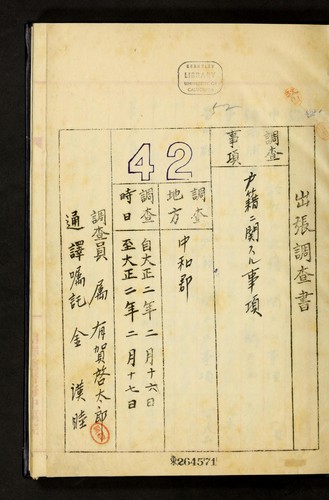 出張調査書
調査事項
戸籍ニ関スル事項
調査地方
中和郡
調査時日
自大正二年二月十六日
至大正二年二月十七日
調査員 属 有賀啓太郎
通譯嘱託 金 漢睦
42
LIBRARY
264571